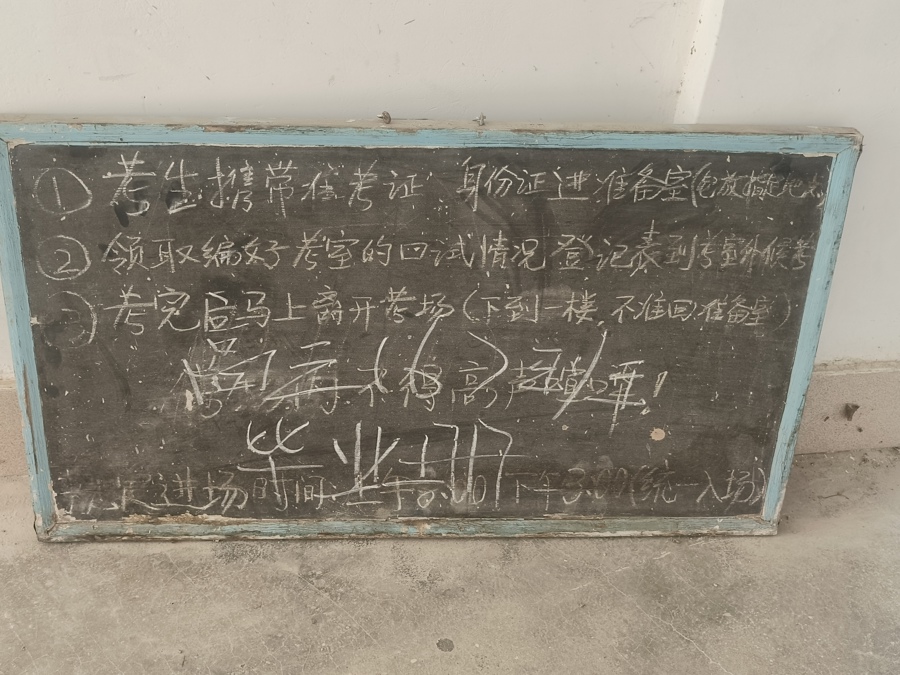 ① 考生携带准考证 身份证进准备室(包放指定地点)
② 领取编好考室的口试情况登记表到考室外候考
③ 考完后马上离开考场(下到一楼,不准回准备室)
不得高声喧哗!
毕业
进场时间:上午8:00 下午3:00(统一入场)